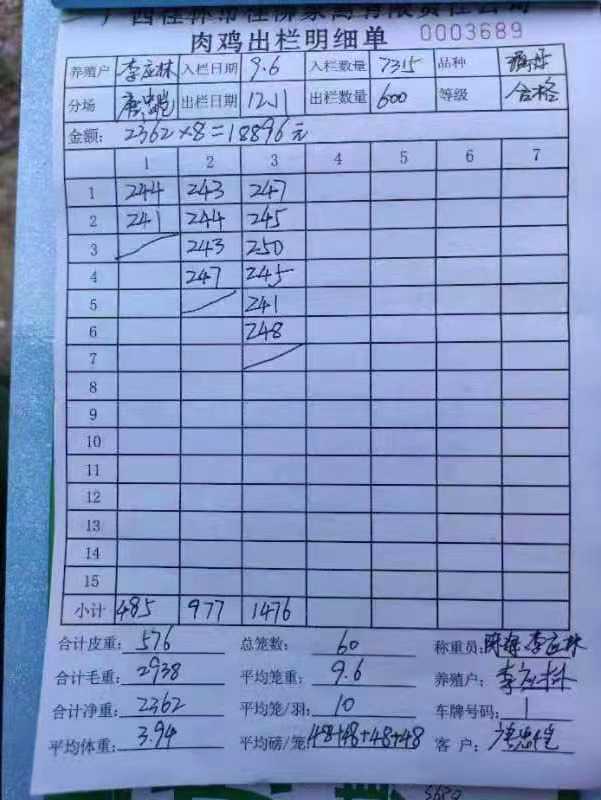 肉鸡出栏明细单 0003689
养殖户 李应林 入栏日期 9.6 入栏数量 7315 品种
分场 出栏日期 12.11 出栏数量 600 等级 合格
金额: 2362×8=18896元
1 2 3 4 5 6 7
1 244 243 247
2 241 244 245
3 243 250
4 247 245
5 241
6 248
7
8
9
10
11
12
13
14
15
小计 485 977 1476
合计皮重: 576 总笼数: 60 称重员: 李应林
合计毛重: 2938 平均笼重: 9.6 养殖户: 李应林
合计净重: 2362 平均笼/羽: 10 车牌号码: 1
平均体重: 3.94 平均磅/笼: 48+48+48+48 客 户: